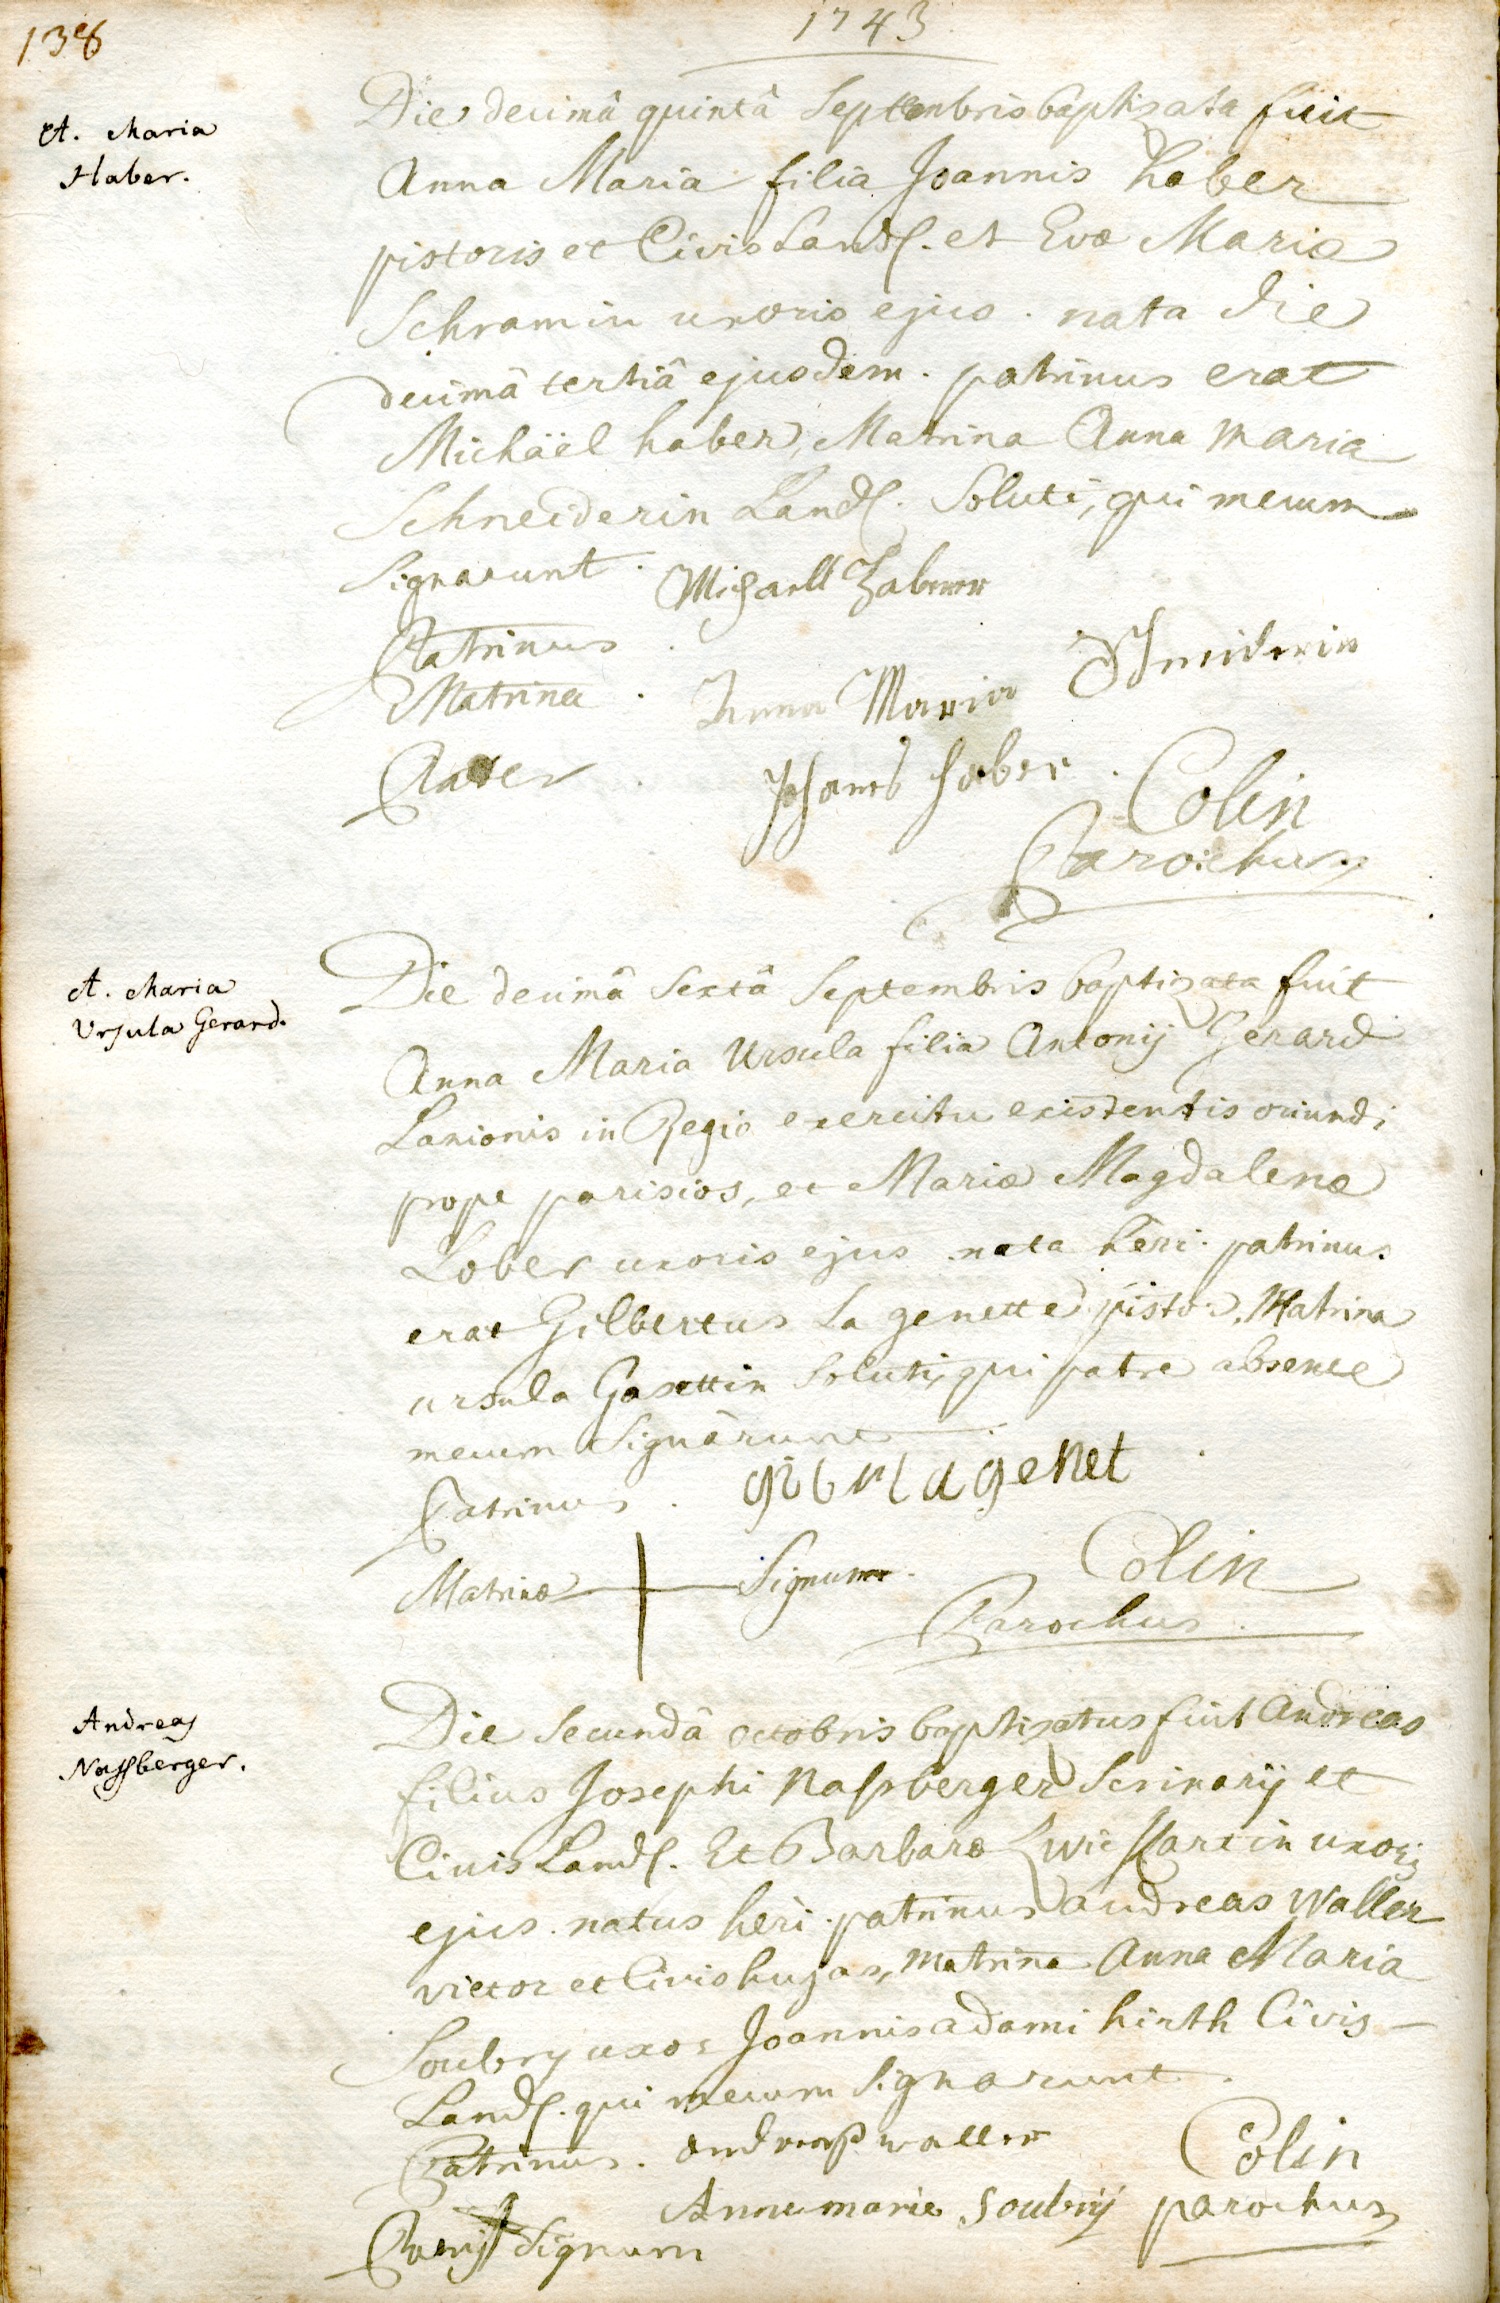 138
1743
A. Maria
Haber.
Die decimâ quintâ Septembris baptizata fuit
Anna Maria filia Joannis haber
pistoris et Civis Land. et Evæ Mariæ
Schramin uxoris ejus. nata die
decimâ tertiâ ejusdem. patrinus erat
Michäel haber, Matrina Anna Maria
Schneiderin Land. Soluti, qui mecum
Signarunt.
Michaell Haberer
Patrinus.
Matrina. Anna Maria Schneiderin
Pater. Johanes haber.
Colin
Parochus
A. Maria
Ursula Gerard.
Die decimâ Sextâ Septembris baptizata fuit
Anna Maria Ursula filia Antonij Gerard
Lanionis in Regio exercitu existentis oriundi
prope parisios, et Mariæ Magdalenæ
Lober uxoris ejus nata heri. patrinus
erat Gilbertus La genette pistor, Matrina
ursula Gasettin Soluti, qui patre absente
mecum Signârunt
Patrinus. lagenet
Matrinæ + Signum.
Colin
Parochus.
Andreas
Nassberger.
Die Secundâ octobris baptizatus fuit Andreas
filius Josephi Nassberger Scrinarij et
Civis Land. Et Barbaræ uxoris
ejus. natus heri. patrinus andreas Waller
vietor et Civis hujas, Matrina Anna Maria
Soubry uxor Joannis adami hirth Civis
Land. qui mecum Signarunt.
Patrinus. andreas waller
Colin
Anne marie Soubrÿ parochus
Patris + Signum